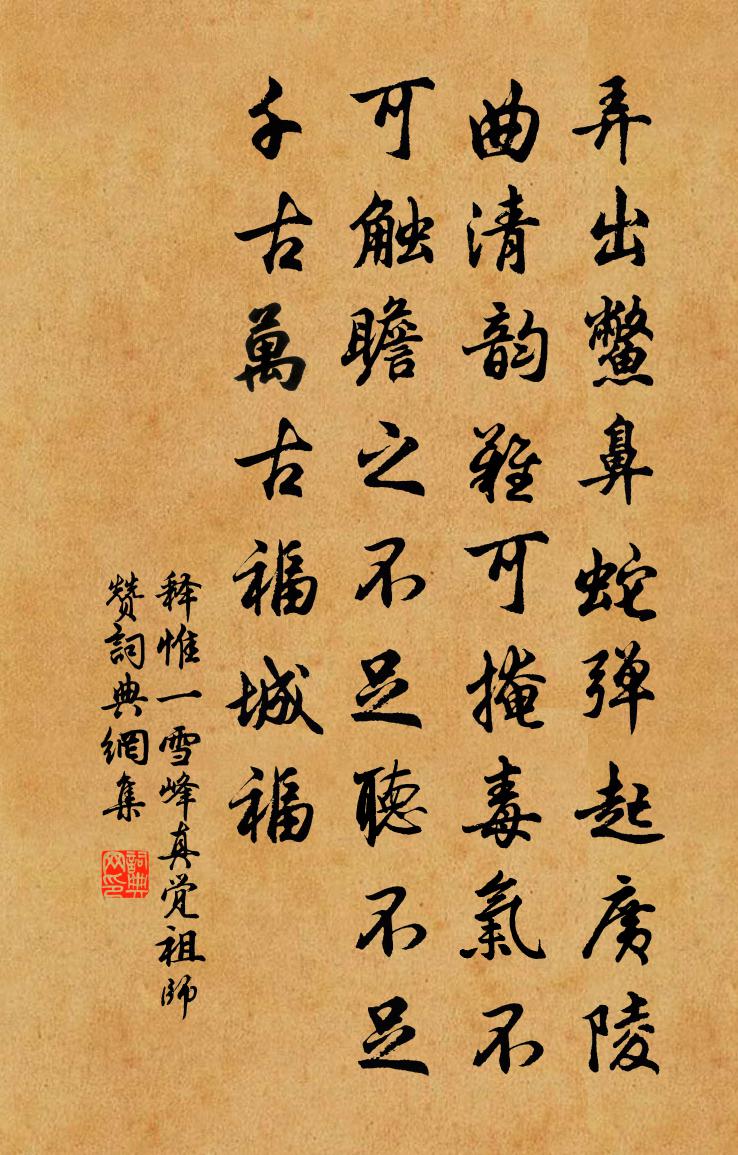 弄出鱉鼻蛇弹起廣陵
曲清韵難可掩毒氣不
可触瞻之不足聽不足
千古萬古福城福
释惟一雪峰真觉祖師
赞詞典網集
詞典网印